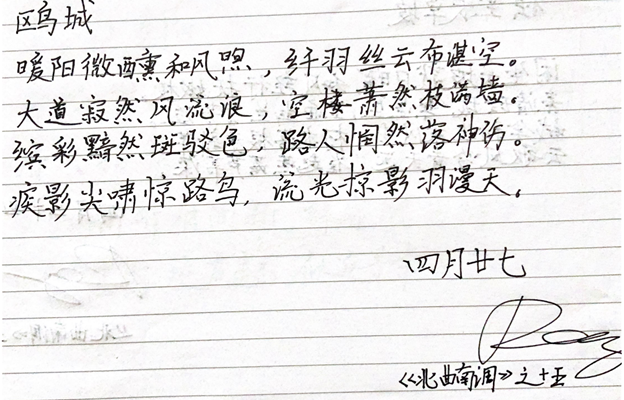 区鸟城
暖阳微醺和风煦，纤羽丝云布湛空。
大道寂然风流浪，空楼萧然枝满墙。
缤彩黯然斑驳色，路人惘然落神伤。
疾影尖啸惊路鸟，流光掠影羽漫天。
四月廿七
《北曲南调》之十五